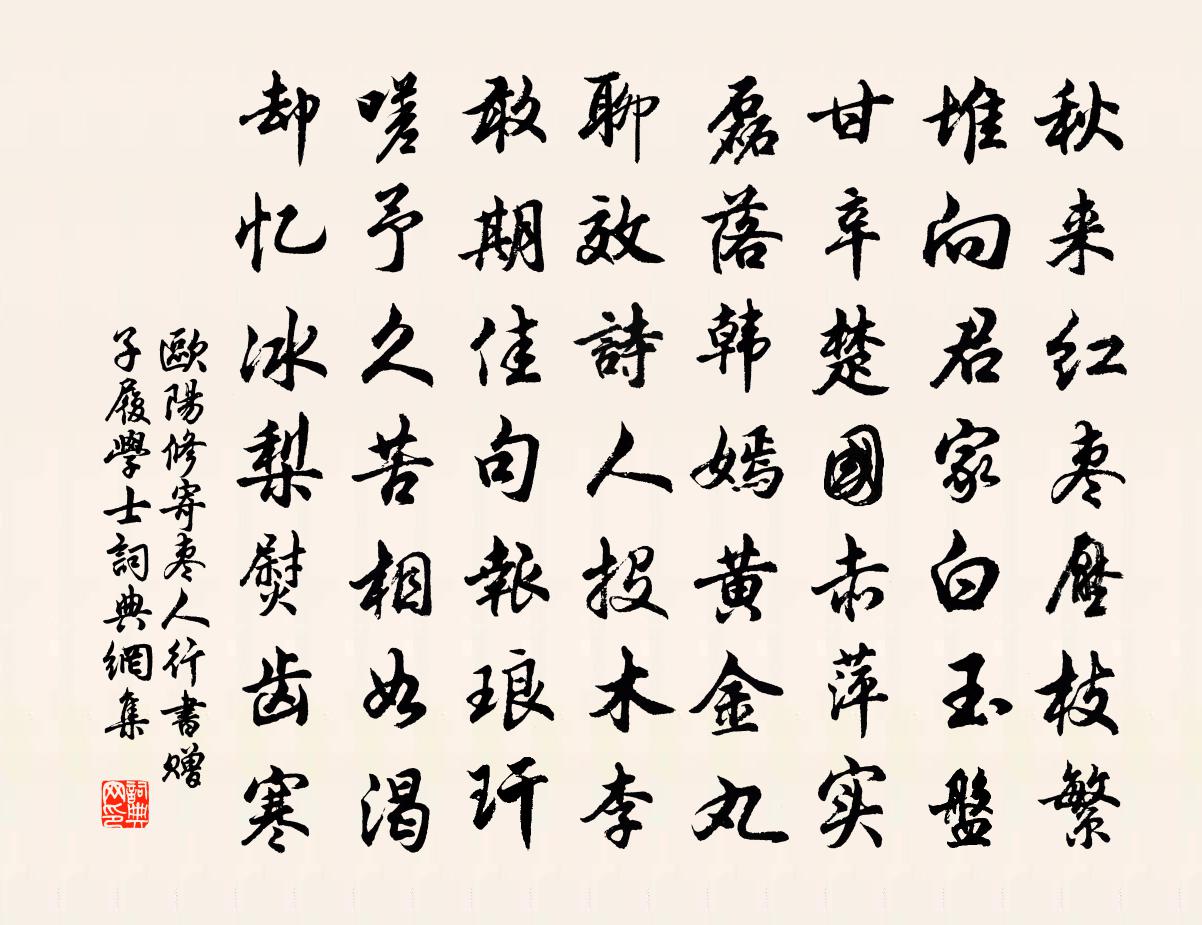 秋来红枣压枝繁
堆向君家白玉盤
甘辛楚國赤萍实
磊落韩嫣黄金丸
聊效詩人投木李
敢期佳句報琅玕
嗟予久苦相如渴
却忆冰梨熨齿寒
歐陽修寄枣人行書贈
子履學士詞典網集
詞典网印